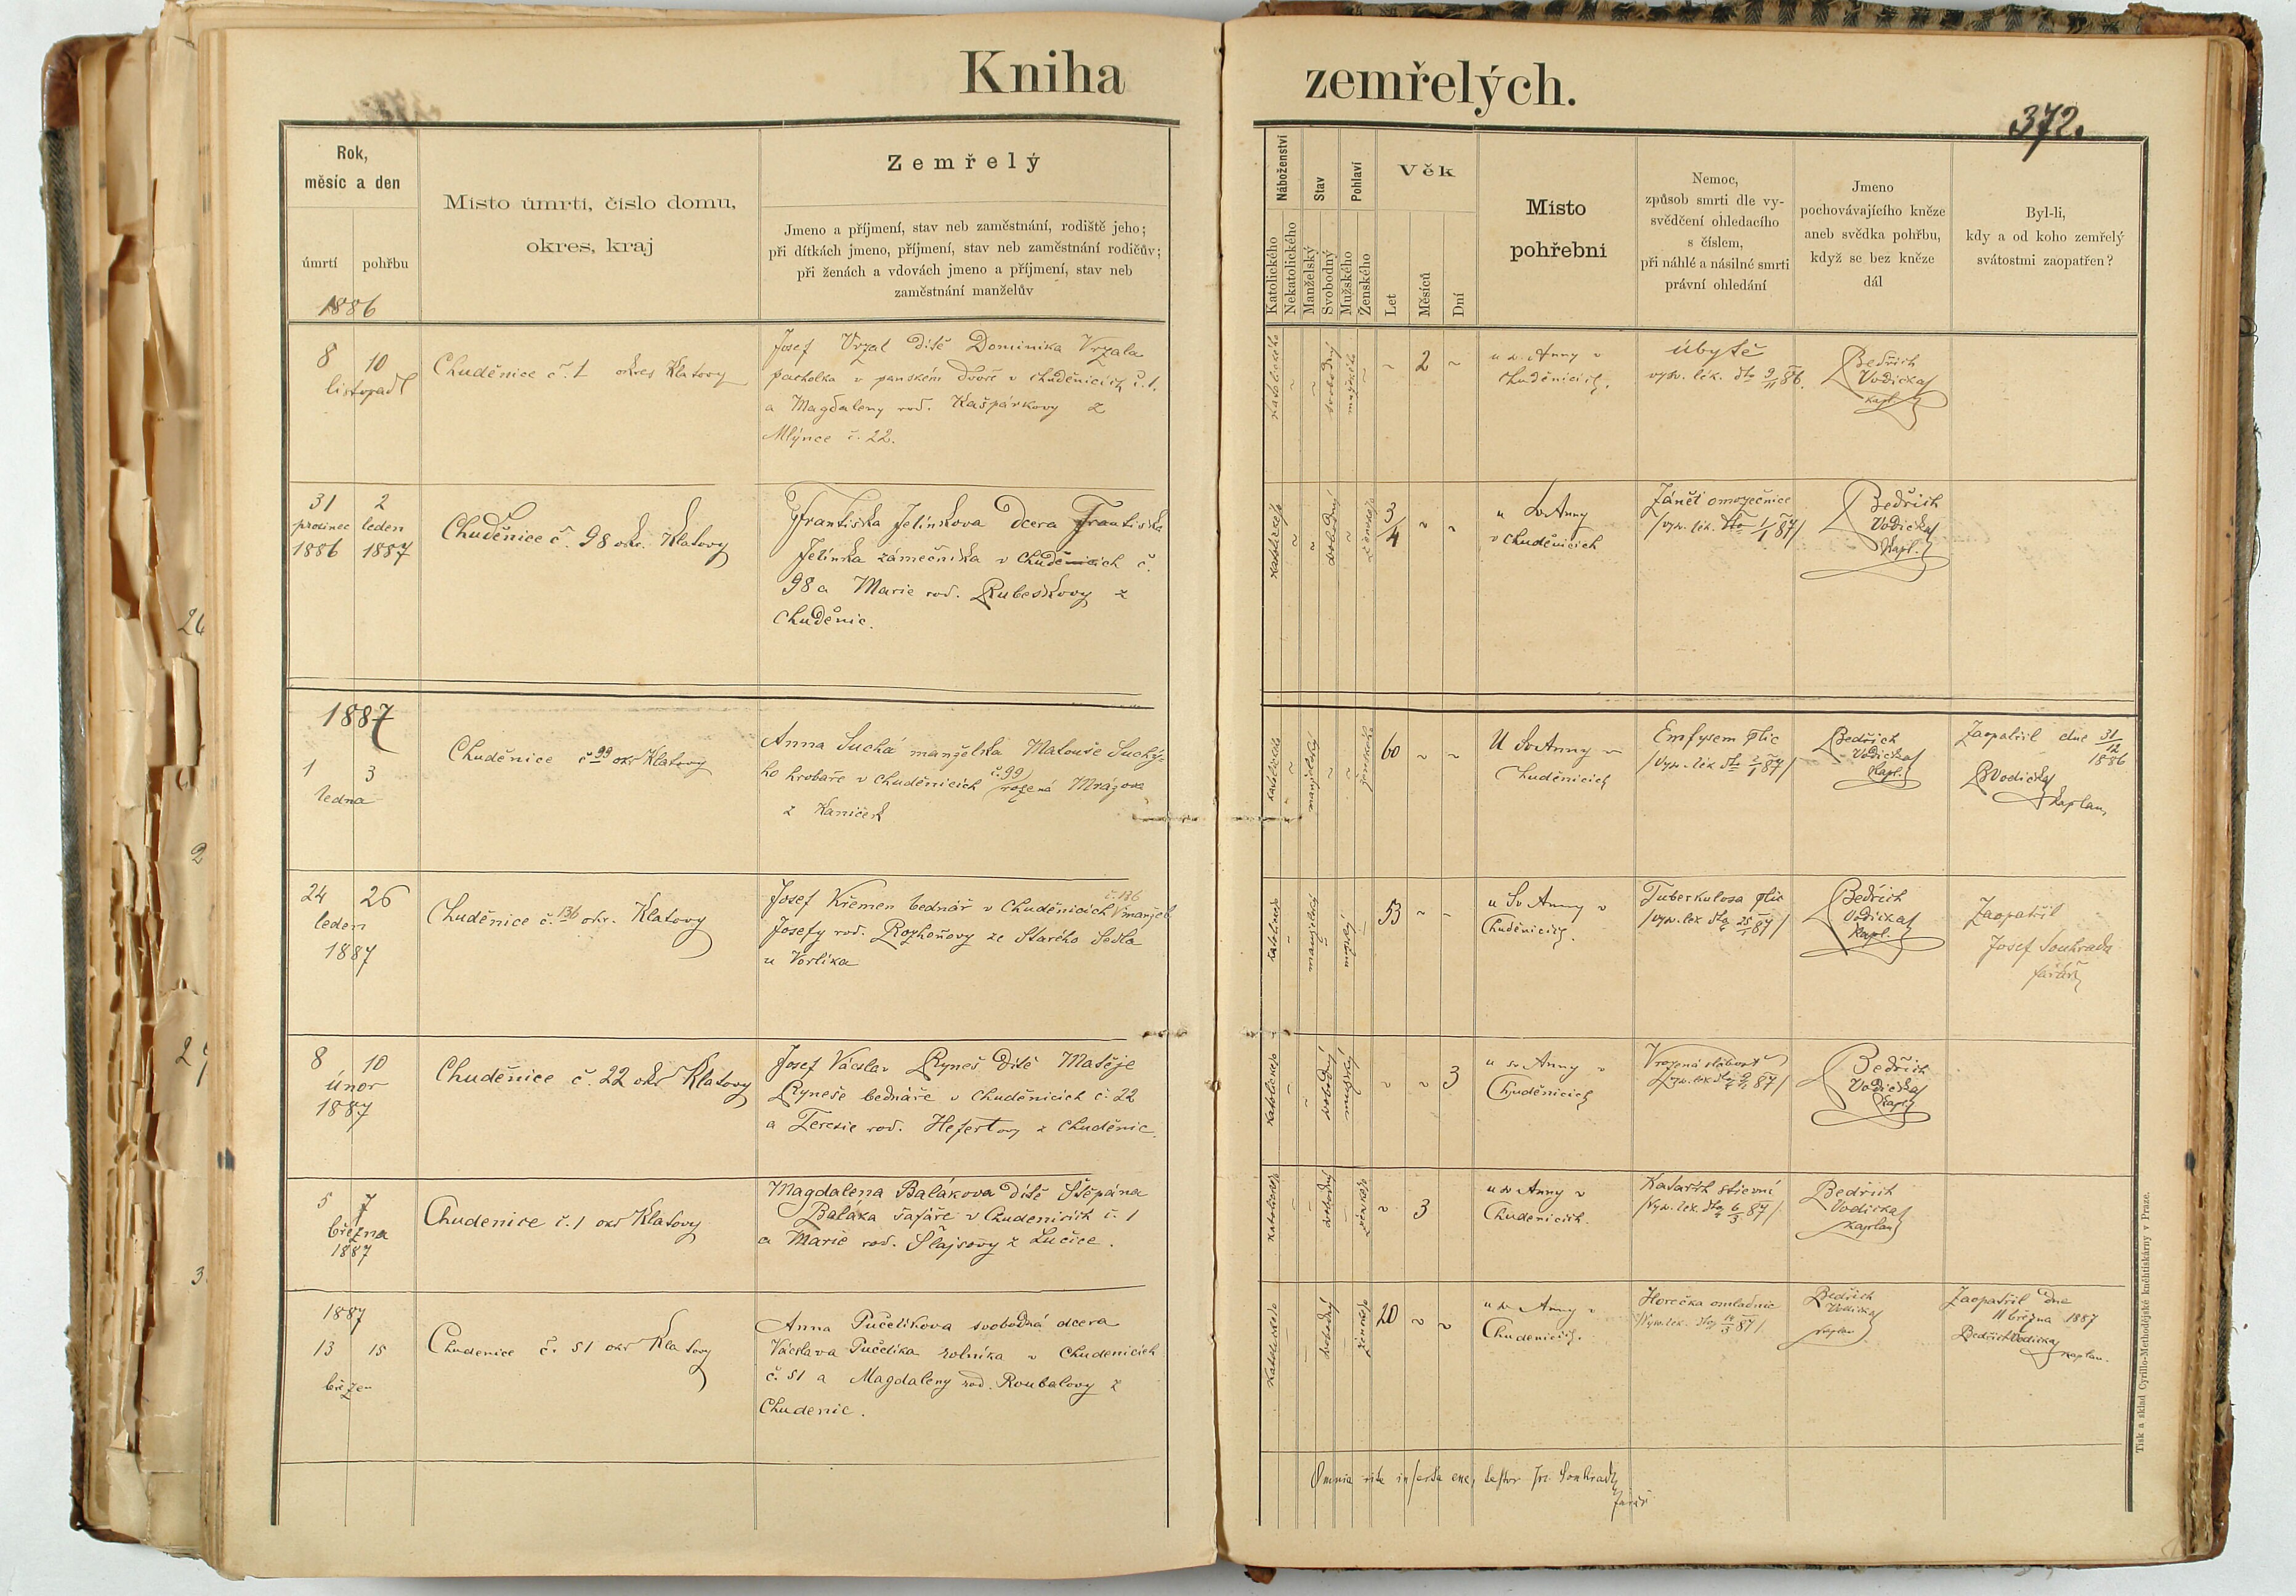 Kniha
zemřelých.
372.
Rok,
měsíc a den
úmrtí
pohřbu
1886
Místo úmrtí, číslo domu,
okres, kraj
Zemřelý
Jmeno a příjmení, stav neb zaměstnání, rodiště jeho;
při dítkách jmeno, příjmení, stav neb zaměstnání rodičův;
při ženách a vdovách jmeno a příjmení, stav neb
zaměstnání manželův
Náboženství
Stav
Pohlaví
Katolického
Nekatolického
Manželský
Svobodný
Mužského
Ženského
Věk
Let
Měsíců
Dní
Místo
pohřební
Nemoc,
způsob smrti dle vy-
svědčení ohledacího
s číslem,
při náhlé a násilné smrti
právní ohledání
Jmeno
pochovávajícího kněze
aneb svědka pohřbu,
když se bez kněze
dál
Byl-li,
kdy a od koho zemřelý
svátostmi zaopatřen?
8 10
listopad
Chuděnice č. 1 okres Klatovy
Josef Vrzal dítě Dominika Vrzala
pacholka v panském dvoře v Chuděnicích č. 1.
a Magdaleny rod. Kašpárkovy z
Mlýnce č. 22.
katolického
svobodný
mužského
2
u sv. Anny v
Chuděnicích.
úbytě
vysv. lék. dto 9/11 86.
Bedřich
Vodička
kapl.
31 2
prosinec leden
1886 1887
Chuděnice č. 98 okr. Klatovy
Františka Jelínkova dcera Františka
Jelínka zámečníka v Chuděnicích č.
98 a Marie rod. Rubeškovy z
Chuděnic.
katolického
svobodný
ženského
3/4
u Sv Anny
v Chuděnicích
Zánět omozečnice
/vysv. lék. dto 1/1 87/
Bedřich
Vodička
Kapl.
1887
1 3
ledna
Chuděnice č 99 okr Klatovy
Anna Suchá manželka Matouše Suché-
ho hrobaře v Chuděnicích č. 99 rozená Mrázova
z Kaniček
katolické
manželský
ženského
60
U Sv Anny v
Chuděnicích
Emfysem plic
/Vysv. lék dto 2/1 87/
Bedřich
Vodička
Kapl.
Zaopatřil dne 31/12
1886
BVodička
Kaplan
24 26
leden
1887
Chuděnice č. 136 okr. Klatovy
Josef Křemen bednář v Chuděnicích č. 136 manžel
Josefy rod. Rozhoňovy ze Starého Sedla
u Vorlíka
katolického
manželský
mužský
53
u Sv Anny v
Chuděnicích.
Tuberkulosa plic
/vysv. lék dto 25/1 87/
Bedřich
Vodička
Kapl.
Zaopatřil
Josef Soukrada
farář
8 10
únor
1887
Chuděnice č. 22 okr Klatovy
Josef Václav Ryneš dítě Matěje
Ryneše bednáře v Chuděnicích č. 22
a Terezie rod. Hefertovy z Chuděnic.
katolického
svobodný
mužský
3
u sv Anny v
Chuděnicích
Vrozená slabost
/vysv. lék dto 9/2 87/
Bedřich
Vodička
Kapl
5 7
března
1887
Chudenice č. 1 okr Klatovy
Magdaléna Balákova dítě Štěpána
Baláka šafáře v Chudenicích č. 1
a Marie rod. Šlajsovy z Lučice.
katolického
svobodný
ženského
3
u sv Anny v
Chudenicích.
Katarrh střevní
/Vysv. lék. dto 6/3 87/
Bedřich
Vodička
kaplan
1887
13 15
březen
Chudenice č. 51 okr Klatovy
Anna Pučelíkova svobodná dcera
Václava Pučelíka rolníka v Chudenicích
č. 51 a Magdaleny rod. Roubalovy z
Chudenic.
katolického
svobodný
ženského
20
u sv Anny v
Chudenicích.
Horečka omladnic
/Vysv. lék. dto 14/3 87/
Bedřich
Vodička
kaplan
Zaopatřil dne
11 března 1887
Bedřich Vodička
kaplan.
Omnia rite inserta esse, testor Jos. Soukrada
farář
Tisk a sklad Cyrillo-Methodějské kněhtiskárny v Praze.